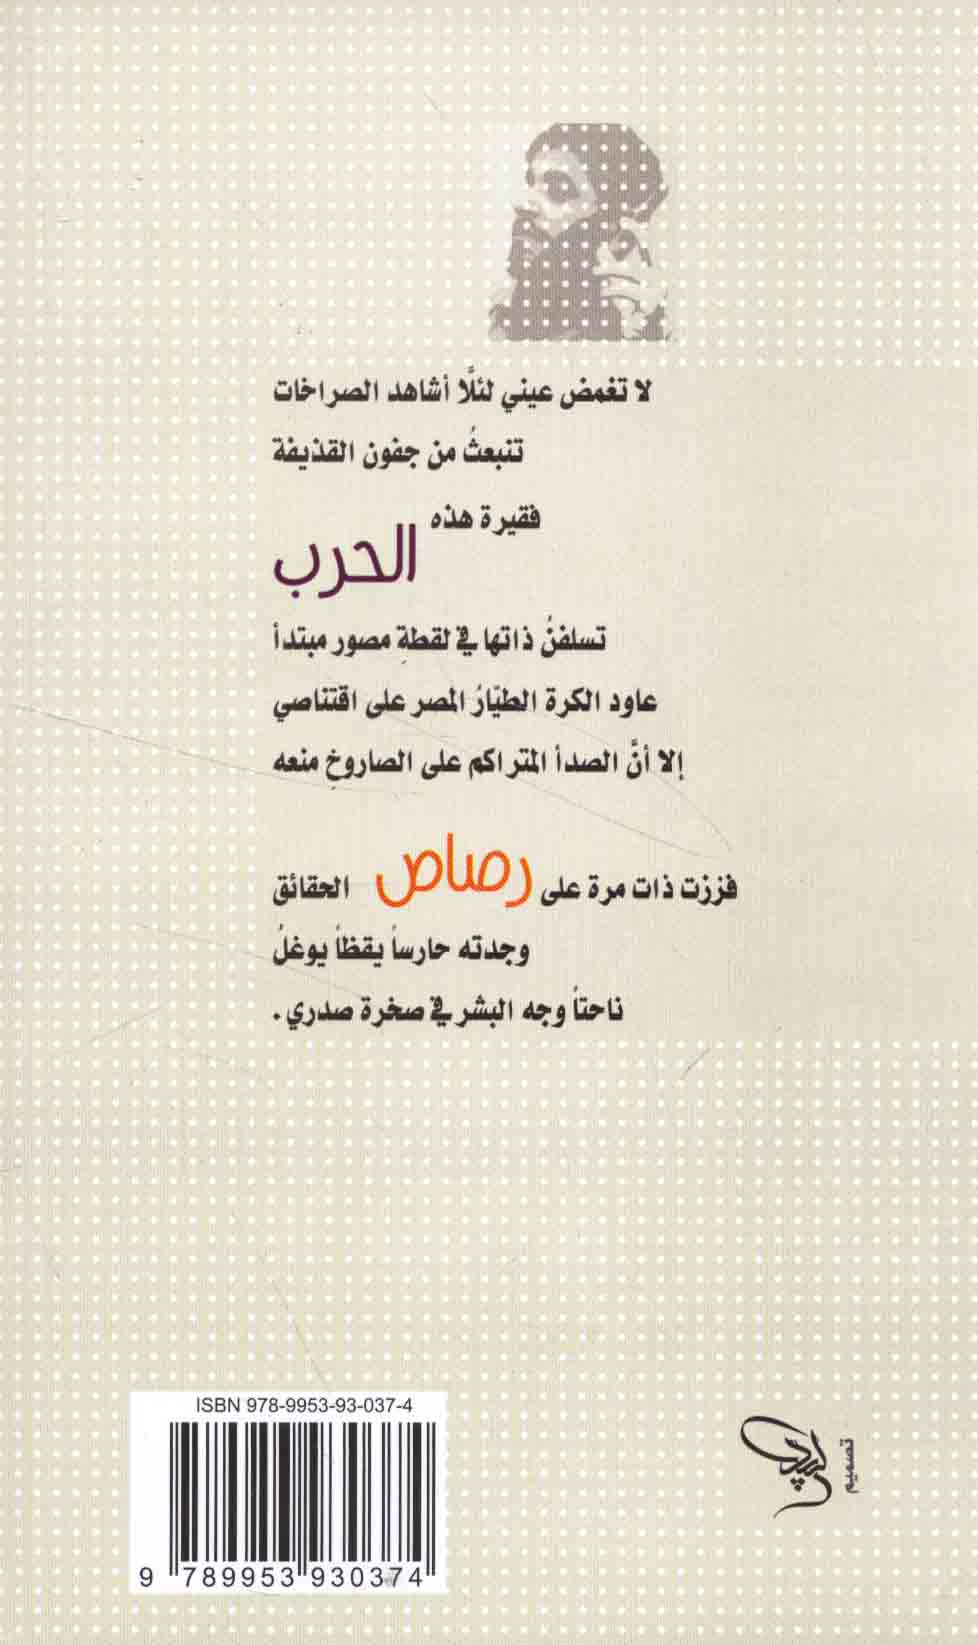 لا تغمض عيني لئلَّا أشاهد الصراخات
تنبعثُ من جفون القذيفة
فقيرة هذه الحرب
تسلفنُ ذاتها في لقطةِ مصور مبتدأ
عاود الكرة الطيّارُ المصر على اقتناصي
إلا أنَّ الصدأ المتراكم على الصاروخِ منعه
فززت ذات مرة على رصاص الحقائق
وجدته حارساً يقظاً يوغلُ
ناحتاً وجه البشر في صخرة صدري .
ISBN 978-9953-93-037-4
9 789953 930374
تصميم